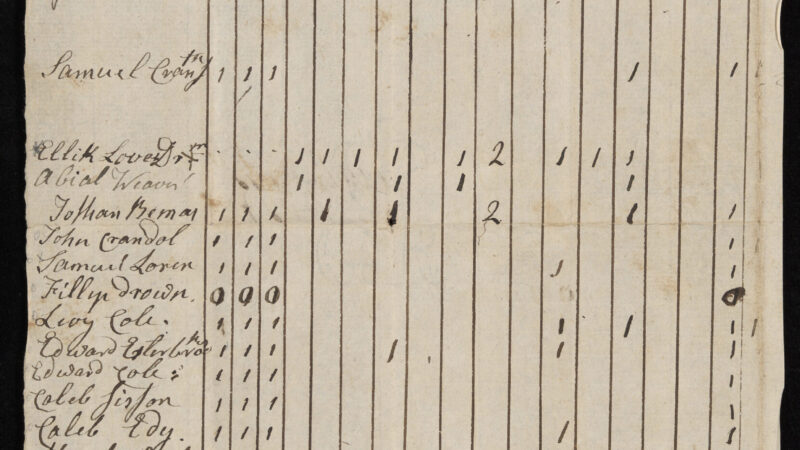 Samuel Cran 1 1 1 1 1 1
Ellik Love 1 1 1 1 1 2 1 1 1
Abial Weaver 1 1 1 1
Joshan Bemas 1 1 1 1 1 2 1 1
John Crandol 1 1 1 1
Samuel Loren 1 1 1 1 1
Fillip Drown. 0 0 0 0
Levy Cole. 1 1 1 1 1 1 1
Edward 1 1 1 1 1 1
Edward Cole 1 1 1 1
Caleb Sisson 1 1 1 1
Caleb Edy. 1 1 1 1 1